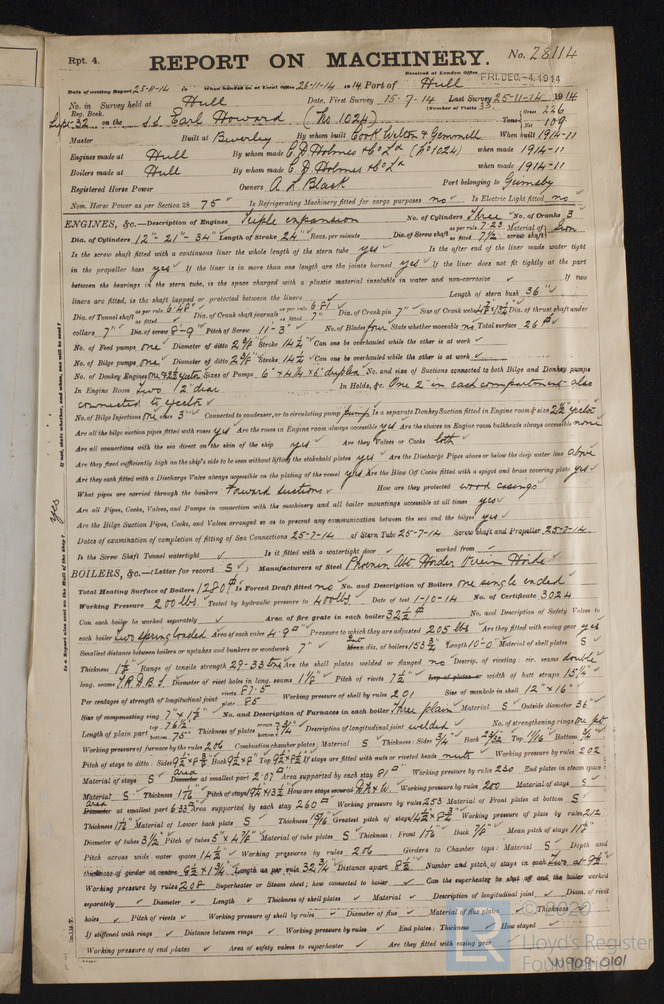 Rpt. 4. REPORT ON MACHINERY. No. 28114
Received at London Office FRI. DEC. -4 1914
Date of writing Report 25-11-14 When handed in at Local Office 26-11-14 1914 Port of Hull
No. in Survey held at Hull Date, First Survey 15-7-14 Last Survey 25-11-14 1914
Reg. Book. (Number of Visits 33)
Suppt 32 on the s.s. Earl Howard (No 1024) Tons Gross 226 Net 109
Master Built at Beverley By whom built Cook Welton & Gemmell When built 1914-11
Engines made at Hull By whom made C. D. Holmes & Co Ld (No 1024) when made 1914-11
Boilers made at Hull By whom made C. D. Holmes & Co Ld when made 1914-11
Registered Horse Power Owners A. L. Black Port belonging to Grimsby
Nom. Horse Power as per Section 28 75 Is Refrigerating Machinery fitted for cargo purposes no Is Electric Light fitted no
ENGINES, &c.—Description of Engines Triple expansion No. of Cylinders Three No. of Cranks 3
Dia. of Cylinders 12"- 21"- 34" Length of Stroke 24" Revs. per minute Dia. of Screw shaft as per rule 7.23 as fitted 7½" Material of screw shaft Iron
Is the screw shaft fitted with a continuous liner the whole length of the stern tube yes Is the after end of the liner made water tight
in the propeller boss yes If the liner is in more than one length are the joints burned yes If the liner does not fit tightly at the part
between the bearings in the stern tube, is the space charged with a plastic material insoluble in water and non-corrosive If two
liners are fitted, is the shaft lapped or protected between the liners Length of stern bush 36"
Dia. of Tunnel shaft as per rule 6.48" as fitted Dia. of Crank shaft journals as per rule 6.81 as fitted 7" Dia. of Crank pin 7" Size of Crank webs Dia. of thrust shaft under
collars 7" Dia. of screw 8'-9" Pitch of Screw 11'-3" No. of Blades four State whether moveable no Total surface 26
No. of Feed pumps one Diameter of ditto Stroke 14½" Can one be overhauled while the other is at work
No. of Bilge pumps one Diameter of ditto Stroke 14½" Can one be overhauled while the other is at work
No. of Donkey Engines one Sizes of Pumps 6" × 4¼ × 6" duplex No. and size of Suctions connected to both Bilge and Donkey pumps
In Engine Room Two 2" dia In Holds, &c. One 2" in each compartment also
connected to ejector
No. of Bilge Injections one sizes 3" Connected to condenser, or to circulating pump pump Is a separate Donkey Suction fitted in Engine room & size 2½" ejector
Are all the bilge suction pipes fitted with roses yes Are the roses in Engine room always accessible yes Are the sluices on Engine room bulkheads always accessible none
Are all connections with the sea direct on the skin of the ship yes Are they Valves or Cocks both
Are they fixed sufficiently high on the ship's side to be seen without lifting the stokehold plates yes Are the Discharge Pipes above or below the deep water line above
Are they each fitted with a Discharge Valve always accessible on the plating of the vessel yes Are the Blow Off Cocks fitted with a spigot and brass covering plate yes
What pipes are carried through the bunkers Forward suctions How are they protected wood casings
Are all Pipes, Cocks, Valves, and Pumps in connection with the machinery and all boiler mountings accessible at all times yes
Are the Bilge Suction Pipes, Cocks, and Valves arranged so as to prevent any communication between the sea and the bilges yes
Dates of examination of completion of fitting of Sea Connections 25-7-14 of Stern Tube 25-7-14 Screw shaft and Propeller 25-7-14
Is the Screw Shaft Tunnel watertight Is it fitted with a watertight door worked from
BOILERS, &c.—(Letter for record S) Manufacturers of Steel Phoenix Abt. Hörder Verein Hörde
Total Heating Surface of Boilers 1280 Is Forced Draft fitted no No. and Description of Boilers one single ended
Working Pressure 200 lbs. Tested by hydraulic pressure to 400 lbs Date of test 1-10-14 No. of Certificate 3024
Can each boiler be worked separately Area of fire grate in each boiler 32½ No. and Description of Safety Valves to
each boiler two spring loaded Area of each valve 4.9 Pressure to which they are adjusted 205 lbs Are they fitted with easing gear yes
Smallest distance between boilers or uptakes and bunkers or woodwork 7" Mean dia. of boilers 153¾" Length 10'-0" Material of shell plates S
Thickness Range of tensile strength 29-33 tons Are the shell plates welded or flanged no Descrip. of riveting: cir. seams double
long. seams T.R.D.B.S. Diameter of rivet holes in long. seams Pitch of rivets 7½" Lap of plates or width of butt straps 15¼"
Per centages of strength of longitudinal joint rivets 87.5 plate 85 Working pressure of shell by rules 201 Size of manhole in shell 12" × 16"
Size of compensating ring No. and Description of Furnaces in each boiler three plain Material S Outside diameter 36"
Length of plain part top 76½" bottom 75" Thickness of plates Description of longitudinal joint welded No. of strengthening rings
Working pressure of furnace by the rules 206 Combustion chamber plates: Material S Thickness: Sides ¾" Back Top 11/16" Bottom
Pitch of stays to ditto: Sides Back Top If stays are fitted with nuts or riveted heads nuts Working pressure by rules 202
Material of stays S Area Diameter at smallest part 2.07 Area supported by each stay 81 Working pressure by rules 230 End plates in steam space:
Material S Thickness Pitch of stays How are stays secured Working pressure by rules 200 Material of stays S
Area Diameter at smallest part 6.33 Area supported by each stay 260 Working pressure by rules 253 Material of Front plates at bottom S
Thickness Material of Lower back plate S Thickness 15/16 Greatest pitch of stays Working pressure of plate by rules 212
Diameter of tubes 3½" Pitch of tubes 5" × 4⅞" Material of tube plates S Thickness: Front Back ⅞" Mean pitch of stays
Pitch across wide water spaces 14½" Working pressures by rules 206 Girders to Chamber tops: Material S Depth and
thickness of girder at centre Length as per rule 32¾" Distance apart 8½" Number and pitch of stays in each Two at 9½"
Working pressure by rules 208 Superheater or Steam chest; how connected to boiler Can the superheater be shut off and the boiler worked
separately Diameter Length Thickness of shell plates Material Description of longitudinal joint Diam. of rivet
holes Pitch of rivets Working pressure of shell by rules Diameter of flue Material of flue plates Thickness
If stiffened with rings Distance between rings Working pressure by rules End plates: Thickness How stayed
Working pressure of end plates Area of safety valves to superheater Are they fitted with easing gear
If not, state whether, and when, one will be sent?
yes
Is a Report also sent on the Hull of the ship?
© 2020
LR
Lloyd's Register
Foundation
W909-0101